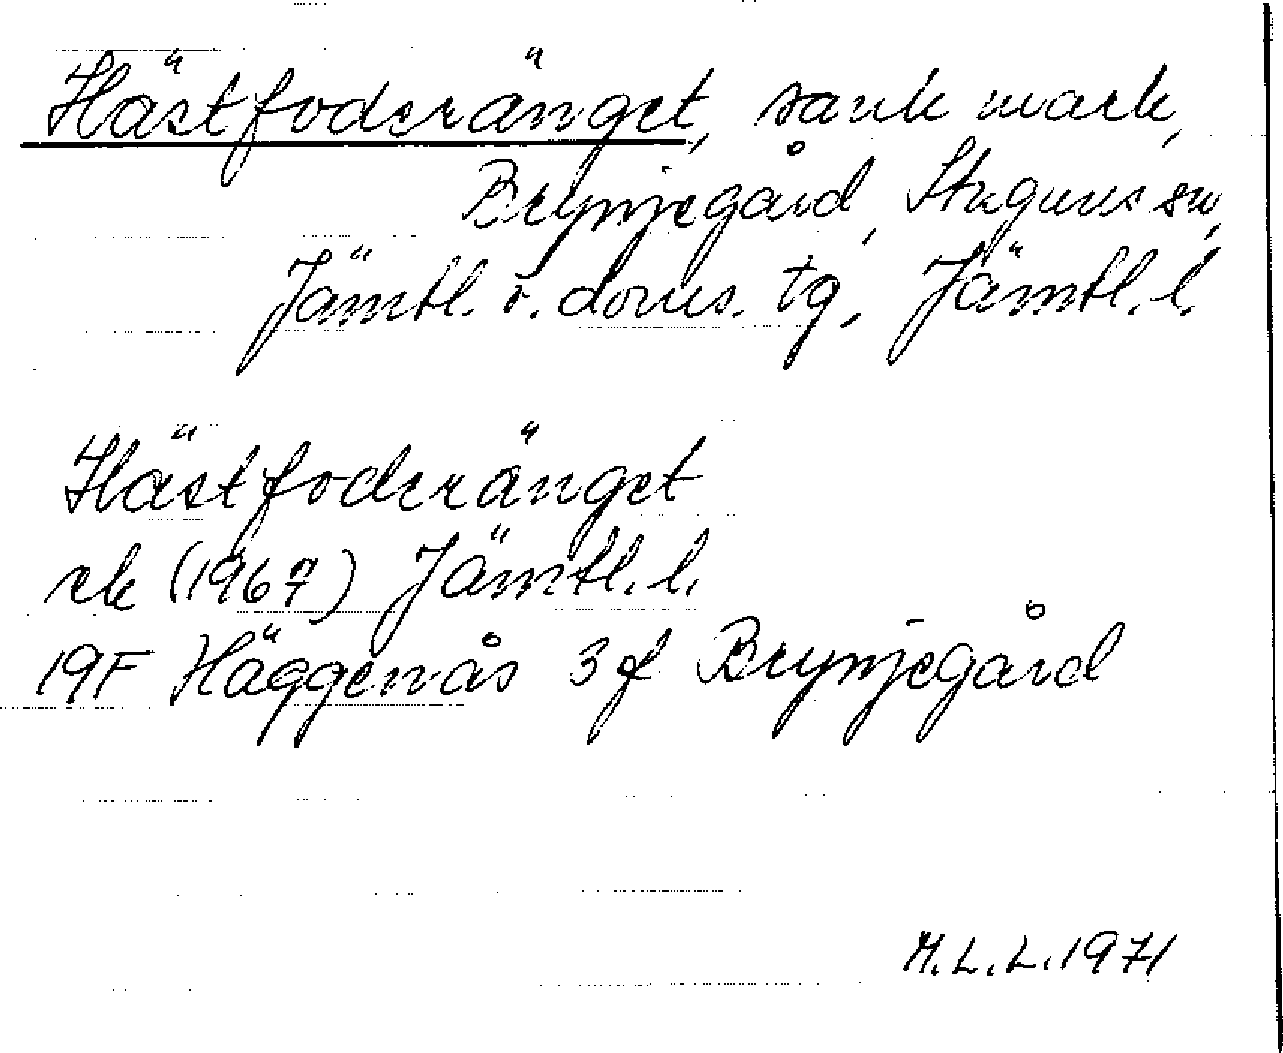 Hästfoderänget, sank mark,
Brynjegård, Stuguns sn,
Jämtl. ö. doms. tg, Jämtl. l.
Hästfoderänget
ek (1967) Jämtl. l.
19F Häggenås 3f Brynjegård
M.L.L. 1971